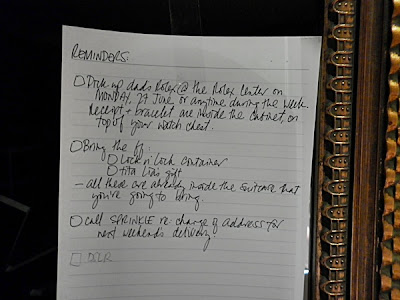 REMINDERS:
○ Pick up dads Rolex @ the Rolex Center on
MONDAY, 27 June or anytime during the week.
Receipt + bracelet are inside the cabinet, on
top of your watch chest.
○ Bring the ff:
○ Lock n' Lock container
○ tita Lia's gift
- all these are already inside the suitcase that
you're going to bring.
○ call SPRINKLE re: change of address for
next weekend's delivery.
□ DSLR